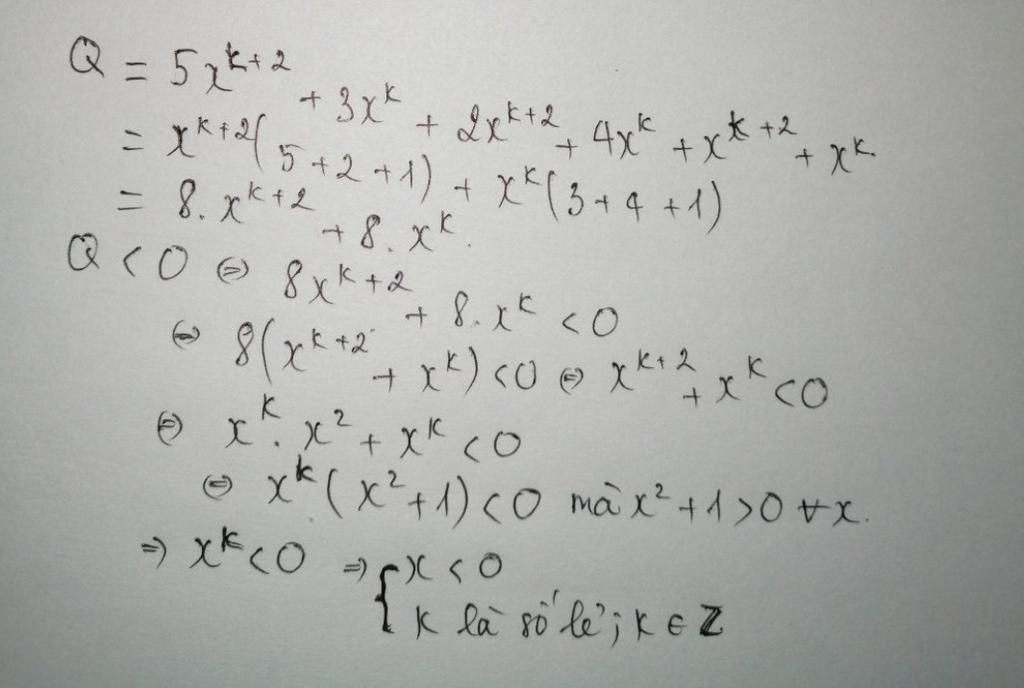 Q = 5x^{k+2} + 3x^k + 2x^{k+2} + 4x^k + x^{k+2} + x^k
= x^{k+2}(5+2+1) + x^k(3+4+1)
= 8.x^{k+2} + 8.x^k.
Q < 0 ⇔ 8x^{k+2} + 8.x^k < 0
⇔ 8(x^{k+2} + x^k) < 0 ⇔ x^{k+2} + x^k < 0
⇔ x^k . x^2 + x^k < 0
⇔ x^k(x^2+1) < 0 mà x^2+1 > 0 ∀x.
⇒ x^k < 0 ⇒ { x < 0
k là số lẻ; k ∈ Z